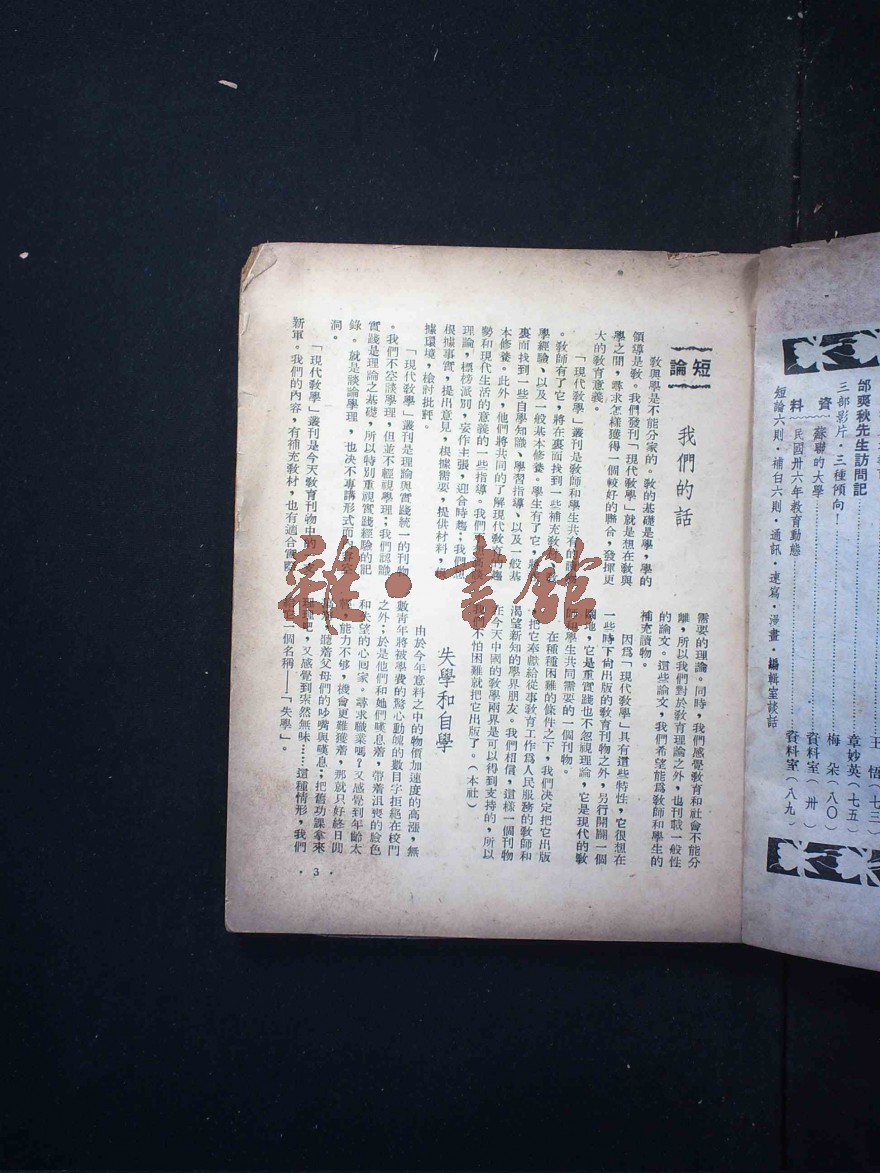 邰爽秋先生訪問記
章妙英(七五)
三部影片,三種傾向!
梅 朵(八〇)
資料
蘇聯的大學
資料室(卅)
民國卅六年教育動態
資料室(八九)
短論六則・補白六則・通訊・速寫・漫畫・編輯室談話
王 悟(七三)
短論
我們的話
教與學是不能分家的。教的基礎是學,學的
領導是教。我們發刊「現代教學」就是想在教與
學之間,尋求怎樣獲得一個較好的聯合,發揮更
大的教育意義。
「現代教學」叢刊是教師和學生共有的讀物
。教師有了它,將在裏面找到一些補充教材、教
學經驗、以及一般基本修養。學生有了它,將在
裏面找到一些自學知識、學習指導、以及一般基
本修養。此外,他們將共同的了解現代教育的趨
勢和現代生活的意義的一些指導。我們
理論,標榜派別,妄作主張,迎合時趨;我們
根據事實,提出意見,根據需要,提供材料,
據環境,檢討批評。
「現代教學」叢刊是理論與實踐統一的刊物
。我們不空談學理,但並不輕視學理;我們認識
實踐是理論之基礎,所以特別重視實踐經驗的記
錄。就是談論學理,也決不專講形式而內容空
洞。
「現代教學」叢刊是今天教育刊物中的
新軍。我們的內容,有補充教材,也有適合實際
需要的理論。同時,我們感覺教育和社會不能分
離,所以我們對於教育理論之外,也刊載一般性
的論文。這些論文,我們希望能為教師和學生的
補充讀物。
因為「現代教學」具有這些特性,它很想在
一些時下向出版的教育刊物之外,另行開闢一個
園地,它是重實踐也不忽視理論,它是現代的教
師和學生共同需要的一個刊物。
在種種困難的條件之下,我們決定把它出版
把它奉獻給從事教育工作為人民服務的教師和
渴望新知的學界朋友。我們相信,這樣一個刊物
在今天中國的教學兩界是可以得到支持的,所以
我們不怕困難就把它出版了。(本社)
失學和自學
由於今年意料之中的物價加速度的高漲,無
數青年將被學費的驚心動魄的數目字拒絕在校門
之外;於是他們和她們嘆息着,帶着沮喪的臉色
和失望的心回家。尋求職業嗎?又感覺到年齡太
輕,能力不够,機會更難獲着,那就只好終日閒
聽着父母們的吵嘴與嘆息;把舊功課拿來
理理吧,又感覺到索然無味……這種情形,我們
給它一個名稱——「失學」。
・3・
雜・書館